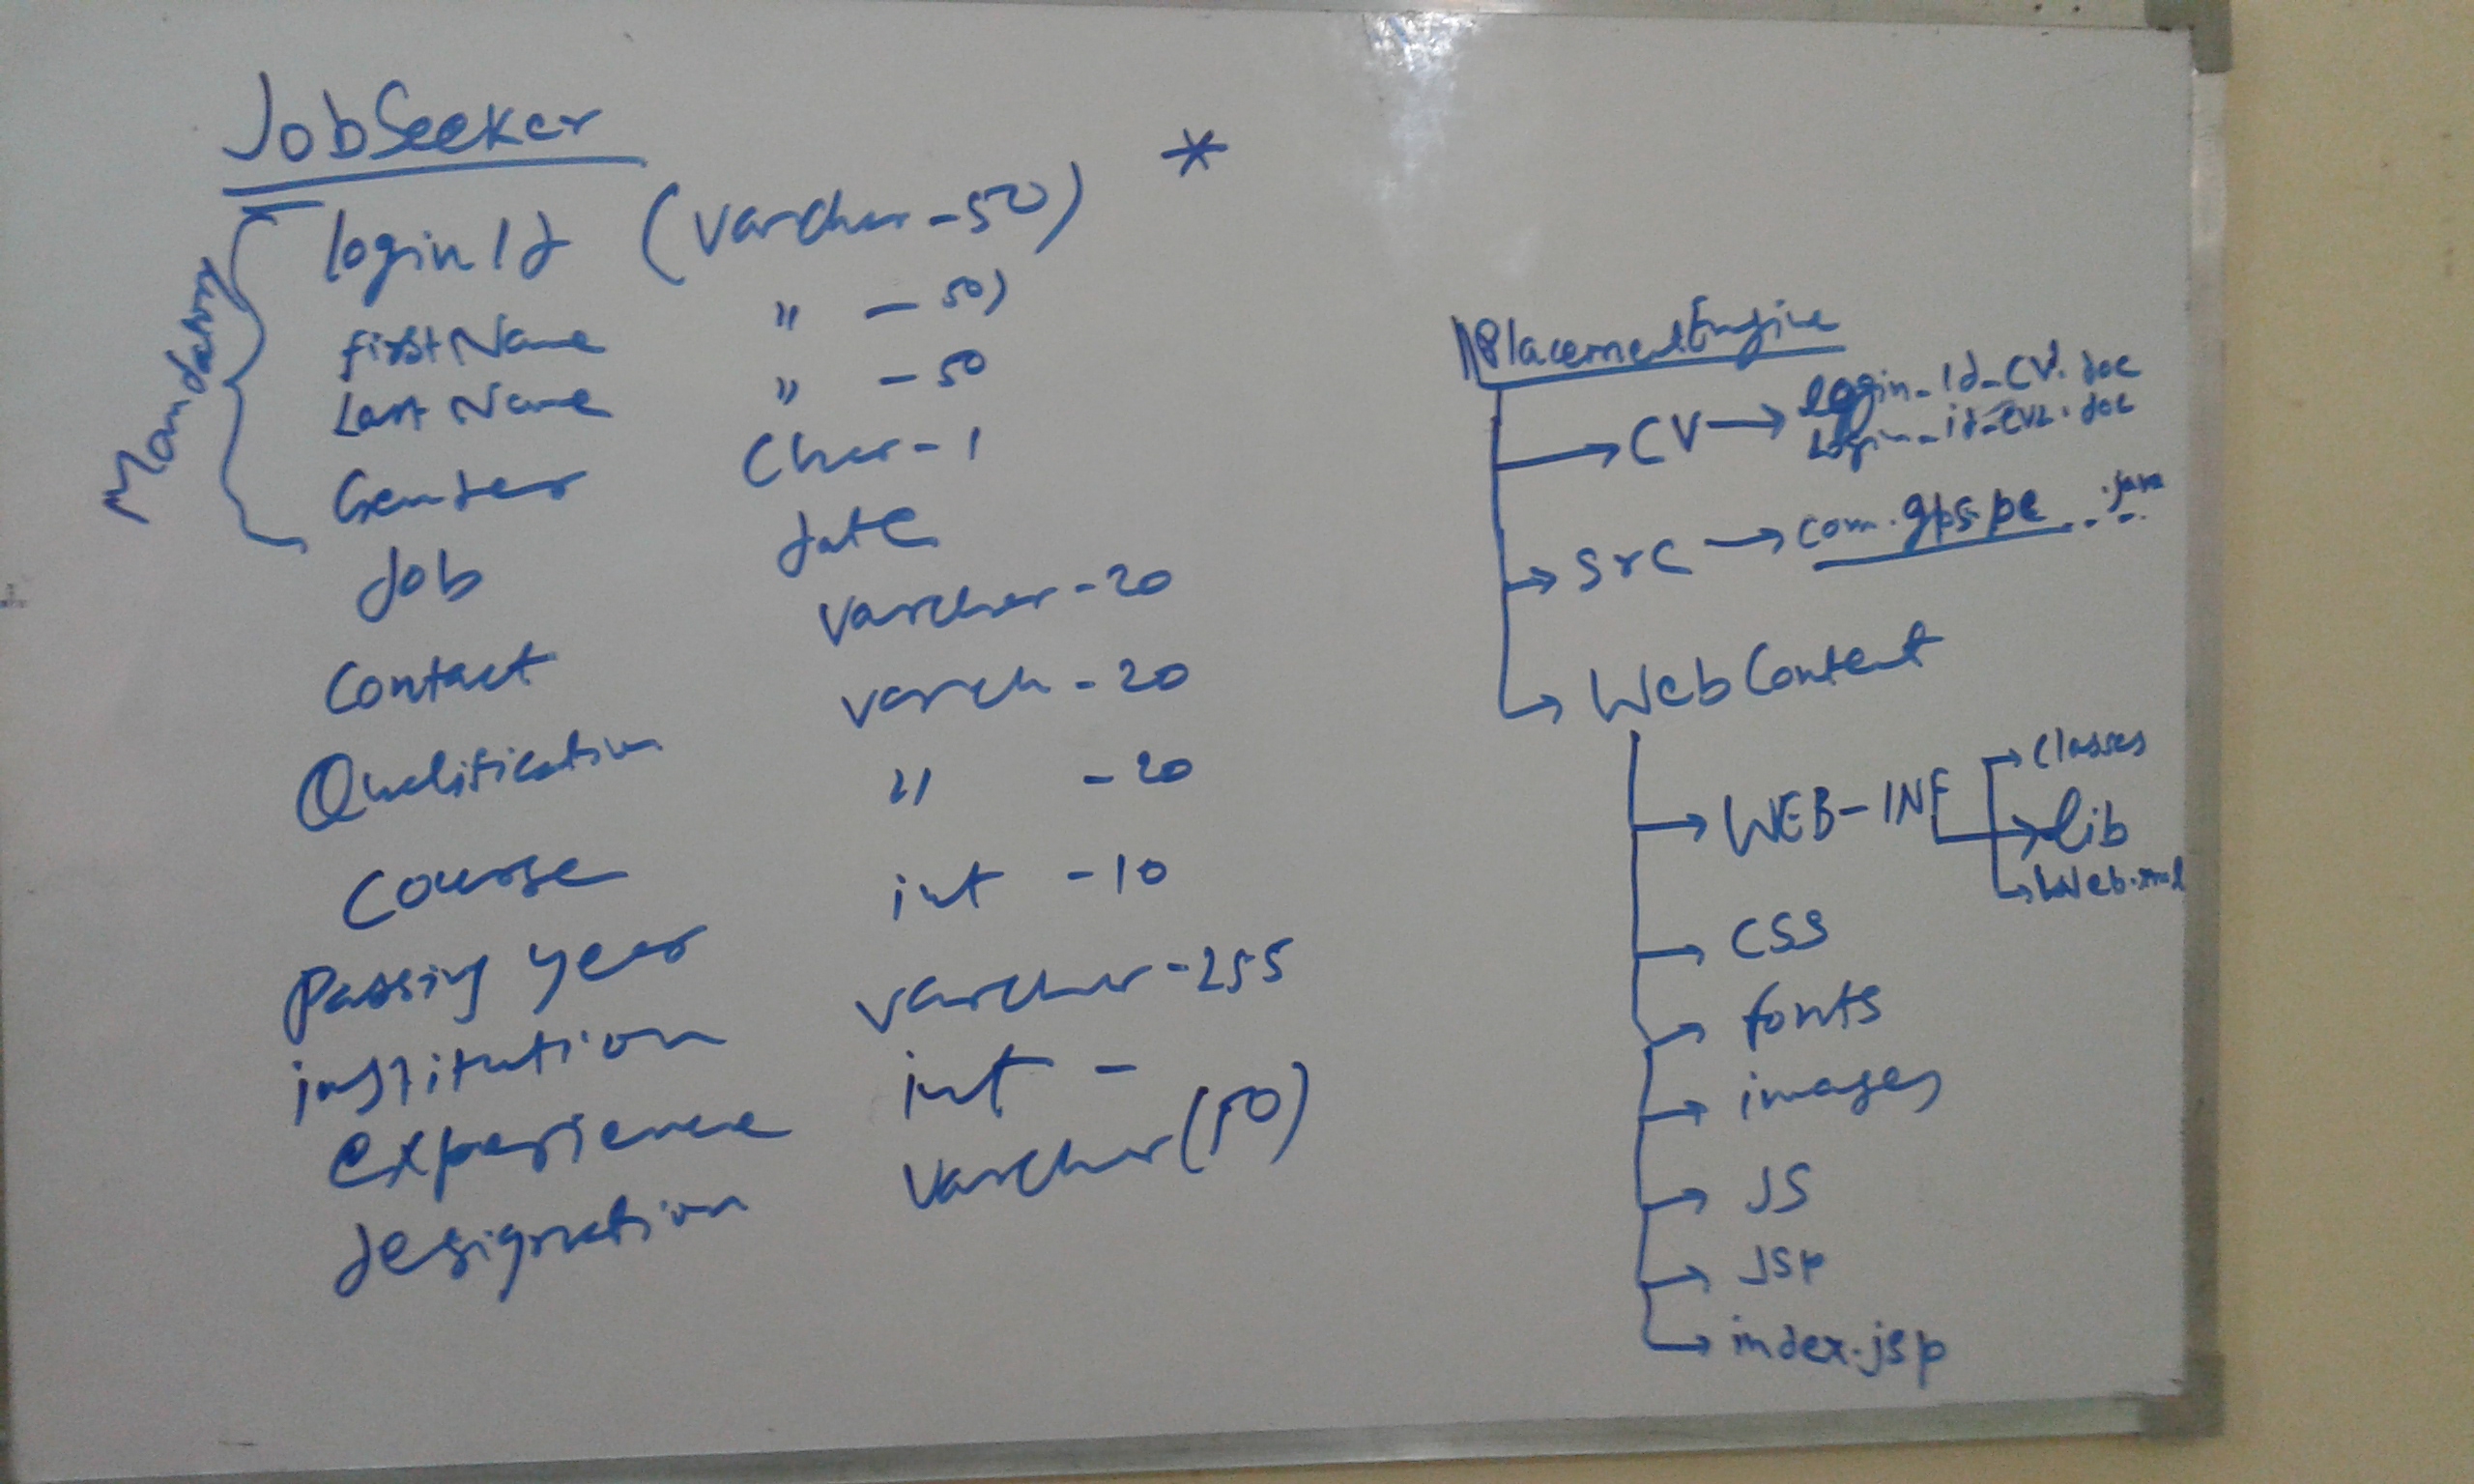 JobSeeker
*
Mandatory
loginId (varchar-50)
firstName " - 50)
Last Name " - 50
Gender Char-1
dob date
Contact varchar-20
Qualification varch-20
Course " - 20
Passing year int - 10
institution varchar-255
experience int -
designation varchar(50)
PlacementEngine
CV → login_Id_CV1.doc
Login_id_CV2.doc
src → com.gps.pe... .java
WebContent
WEB-INF
classes
lib
Web.xml
CSS
fonts
images
JS
JSP
index.jsp